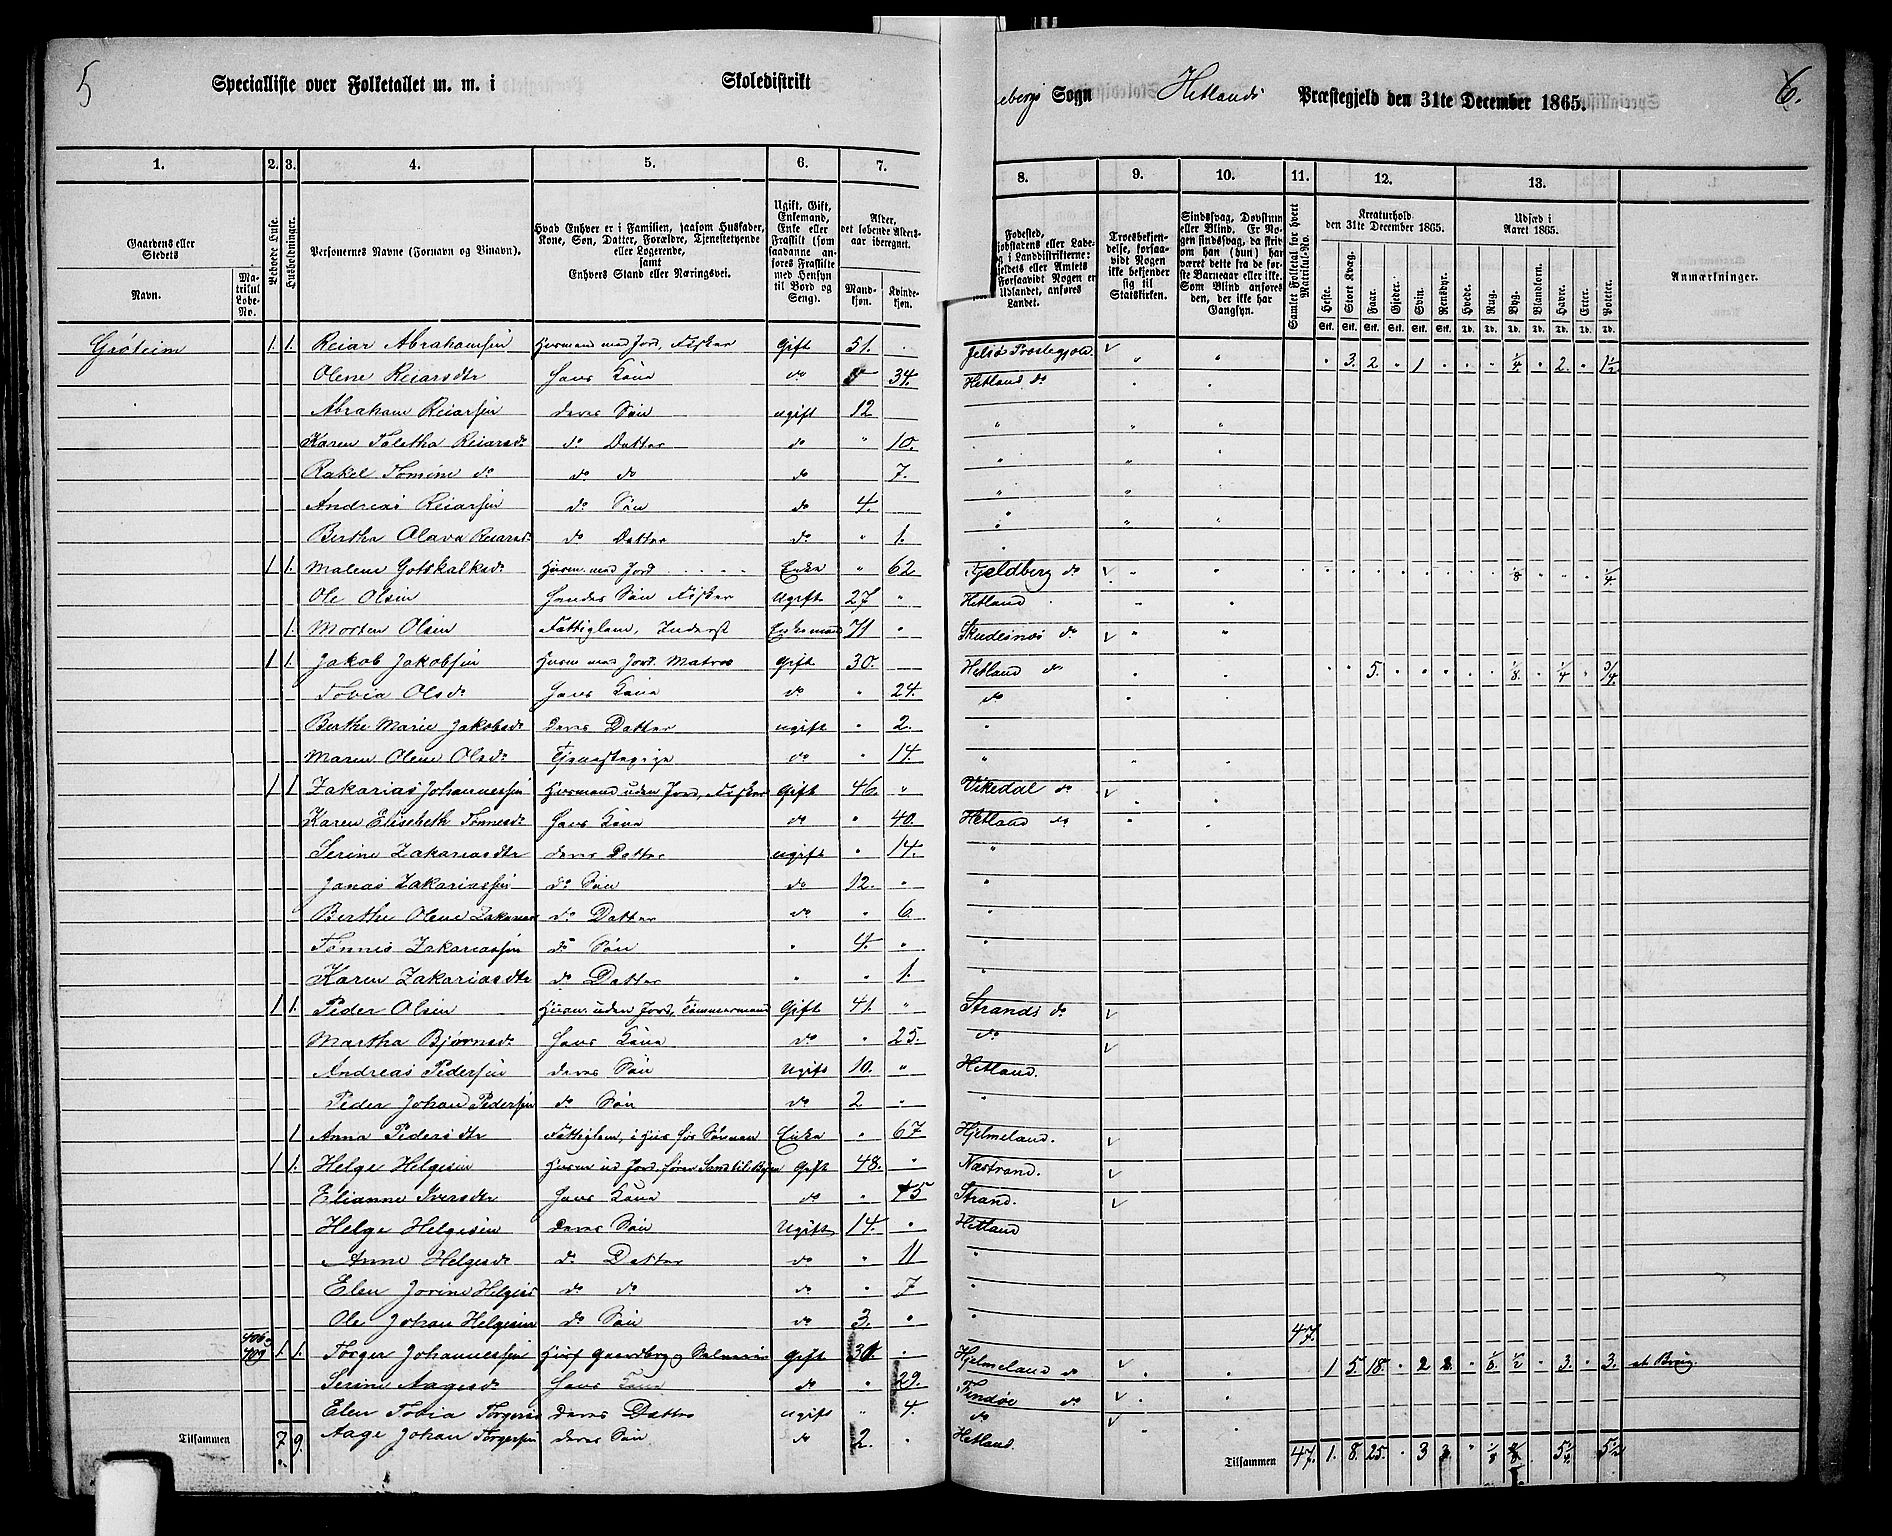 5
Specialliste over Folketallet m. m. i Skoledistrikt
Sogn Hetlands Præstegjeld den 31te December 1865.
6.
1. 2. 3. 4. 5. 6. 7. 8. 9. 10. 11. 12. 13.
Gaardens eller Stedets Navn.
Matrikul Løbe-No.
Beboede Huse.
Husholdninger.
Personernes Navne (Fornavn og Binavn).
Hvad Enhver er i Familien, saasom Husfader, Kone, Søn, Datter, Forældre, Tjenestetyende eller Logerende, samt Enhvers Stand eller Næringsvei.
Ugift, Gift, Enkemand, Enke eller Fraskilt (som saadanne anføres Fraskilte med Hensyn til Bord og Seng).
Alder, det løbende Aldersaar iberegnet.
Mandkjøn. Kvindekjøn.
Fødested,
Troesbekjendelse, forsaavidt Nogen ikke bekjender sig til Statskirken.
Sindssvag, Døvstum eller Blind. Er Nogen sindssvag, da skrives om han (hun) har været dette fra de første Barneaar eller ikke. Som Blind anføres den, der ikke har Gangsyn.
Samlet Folketal for hvert Matrikul-No.
Kreaturhold den 31te December 1865.
Heste. Stort Kvæg. Faar. Gjeder. Svin. Rensdyr.
Udsæd i Aaret 1865.
Hvede. Rug. Byg. Blandkorn. Havre. Erter. Poteter.
Anmærkninger.
Grøteim 1. 1. Reiar Abrahamsen Husmand med Jord, Fisker Gift 51. Jelsø Præstegjeld 3. 2 1 1/4 2. 1 1/2
Olene Reiarsdtr Hans Kone do 34. Hetland do
Abraham Reiarsen deres Søn ugift 12
Karen Taletha Reiarsdr do Datter do 10.
Rakel Tomine do do do do 7.
Andreas Reiarsen do Søn do 4.
Bertha Olava Reiarsdr do Datter do 1.
1 1. Malene Gotskalksdr Husm. med Jord Enke 62 Fjeldberg do 1/8 1/4
Ole Olsen Hendes Søn Fisker Ugift 27 Hetland
1. Morten Olsen Fattiglem, Inderst Enkemand 71 Skudesnes do
1 1. Jakob Jakobsen Husm med Jord. Matros Gift 30. Hetland do 5. 1/8 1/4 3/4
Tobia Olsdr Hans Kone do 24. do
Berthe Marie Jakobsdr deres Datter ugift 2.
Maren Olene Olsdr Tjenestepige do 14.
1 1 Zakarias Johannessen Husmand uden Jord, Fisker Gift 46. Vikedal do
Karen Elisebeth Tønnesdr Hans Kone do 40. Hetland do
Serine Zakariasdtr deres Datter ugift 14.
Jonas Zakariassen do Søn do 12.
Berthe Olene Zakarias do Datter do 6
Tønnes Zakariassen do Søn 4.
Karen Zakariasdtr do Datter 1.
1 1. Peder Olsen Husm. uden Jord, Tømmermand Gift 41. Strands do
Martha Bjørnsdr Hans Kone do 25. do
Andreas Pedersen deres Søn Ugift 10. Hetland.
Peder Johan Pedersen do Søn do 2
1 Anna Pedersdtr Fattiglem, i Hus hos Sønnen Enke 67 Hjelmeland.
1 1. Helge Helgesen Husm ud Jord, fører Sand til Byen Gift 48. Nestrand.
Elianne Iversdtr Hans Kone do 45 Strand.
Helge Helgesen Deres Søn Ugift 14. Hetland
Anne Helgesdr do Datter do 11
Elen Jorine Helges do do do 7
Ole Johan Helgesen do Søn do 3. 47.
406 409 1. 1. Torger Johannessen Gift 30. Hjelmeland do 1 5. 18. 2 2. 1/8. 1/2 3. 3.
Serine Aagesdr Hans Kone do 29. Findøe do
Elen Tobia Torgers deres Datter ugift 4. do
Aage Johan Torgersen deres Søn do 2. Hetland.
Tilsammen 7. 9.
Tilsammen 47. 1. 8. 25. 3 3. 1/8 5 1/4 5 1/2